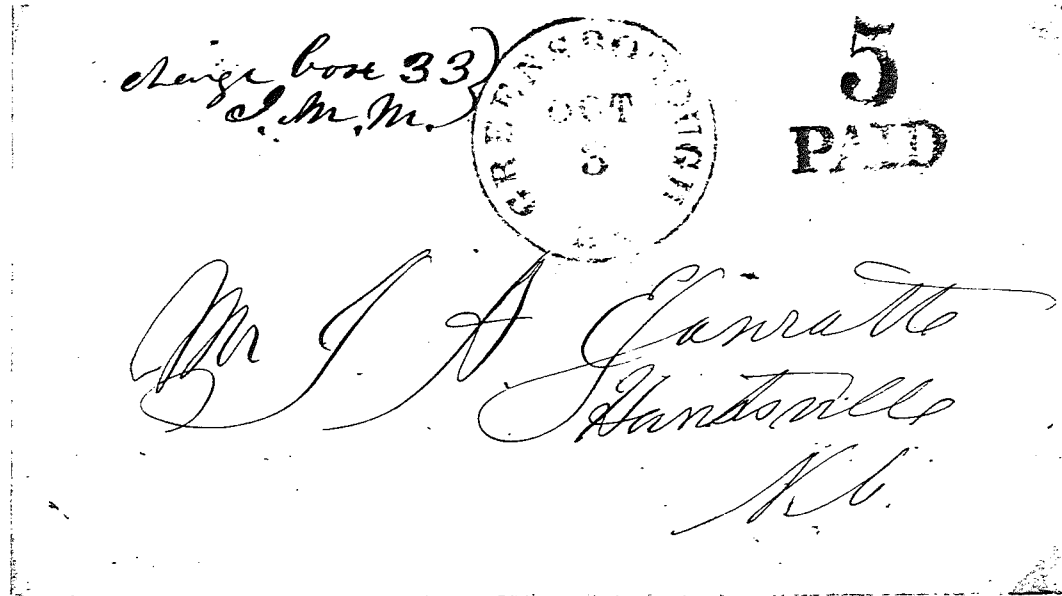 charge box 33
J. M. M.
GREENSBOROUGH
OCT
8
5
PAID
Mr I. A. Jarratt
Huntsville
N.C.